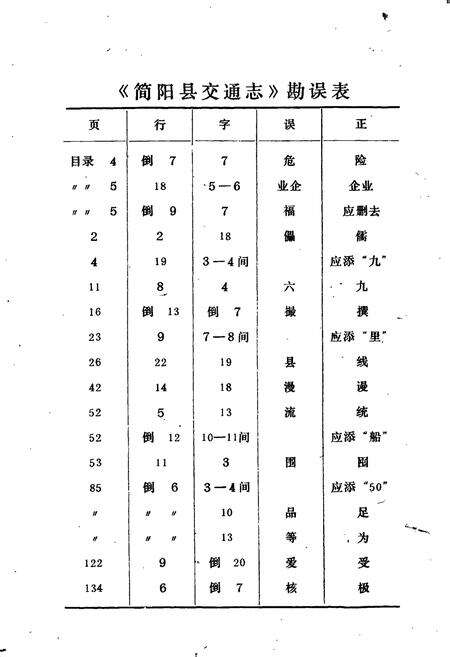 《简阳县交通志》勘误表
页 行 字 误 正
目录 4 倒 7 7 危 险
〃 〃 5 18 5—6 业企 企业
〃 〃 5 倒 9 7 福 应删去
2 2 18 儒
4 19 3—4间 应添“九”
11 8 4 六 九
16 倒 13 倒 7 撮 撰
23 9 7—8间 应添“里”
26 22 19 县 线
42 14 18 漫 谩
52 5 13 流 统
52 倒 12 10—11间 应添“船”
53 11 3 围 囤
85 倒 6 3—4间 应添“50”
〃 〃 〃 10 品 足
〃 〃 〃 13 等 为
122 9 倒 20 爱 受
134 6 倒 7 核 极